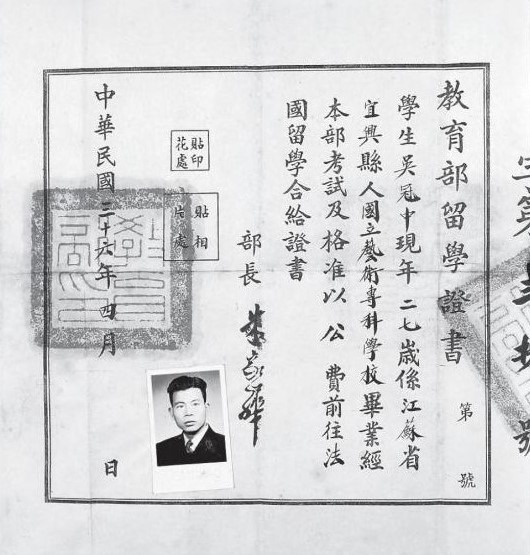 教育部留學證書
第 號
學生吳冠中現年二七歲係江蘇省
宜興縣人國立藝術專科學校畢業經
本部考試及格准以公費前往法
國留學合給證書
部長 朱家驊
貼印花處
貼相片處
中華民國三十六年四月 日
字第 號